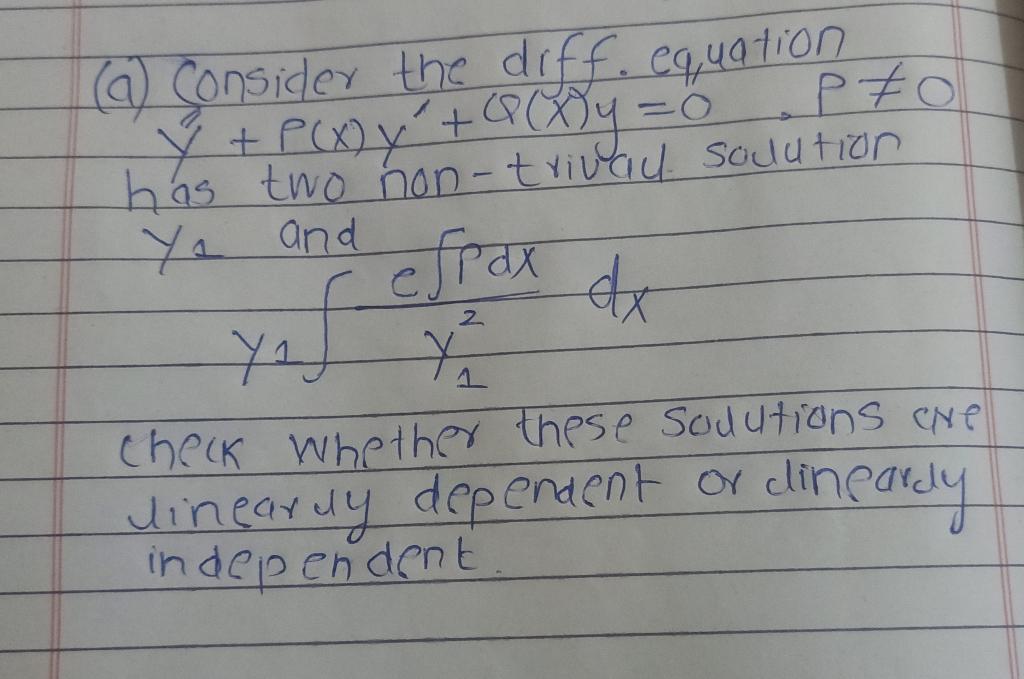 (a) Consider the diff. equation
y'' + P(x)y' + Q(x)y = 0 . P ≠ 0
has two non-trivial solution
y₁ and
y₁ ∫ e∫Pdx / y₁² dx
check whether these solutions are
linearly dependent or linearly
independent.